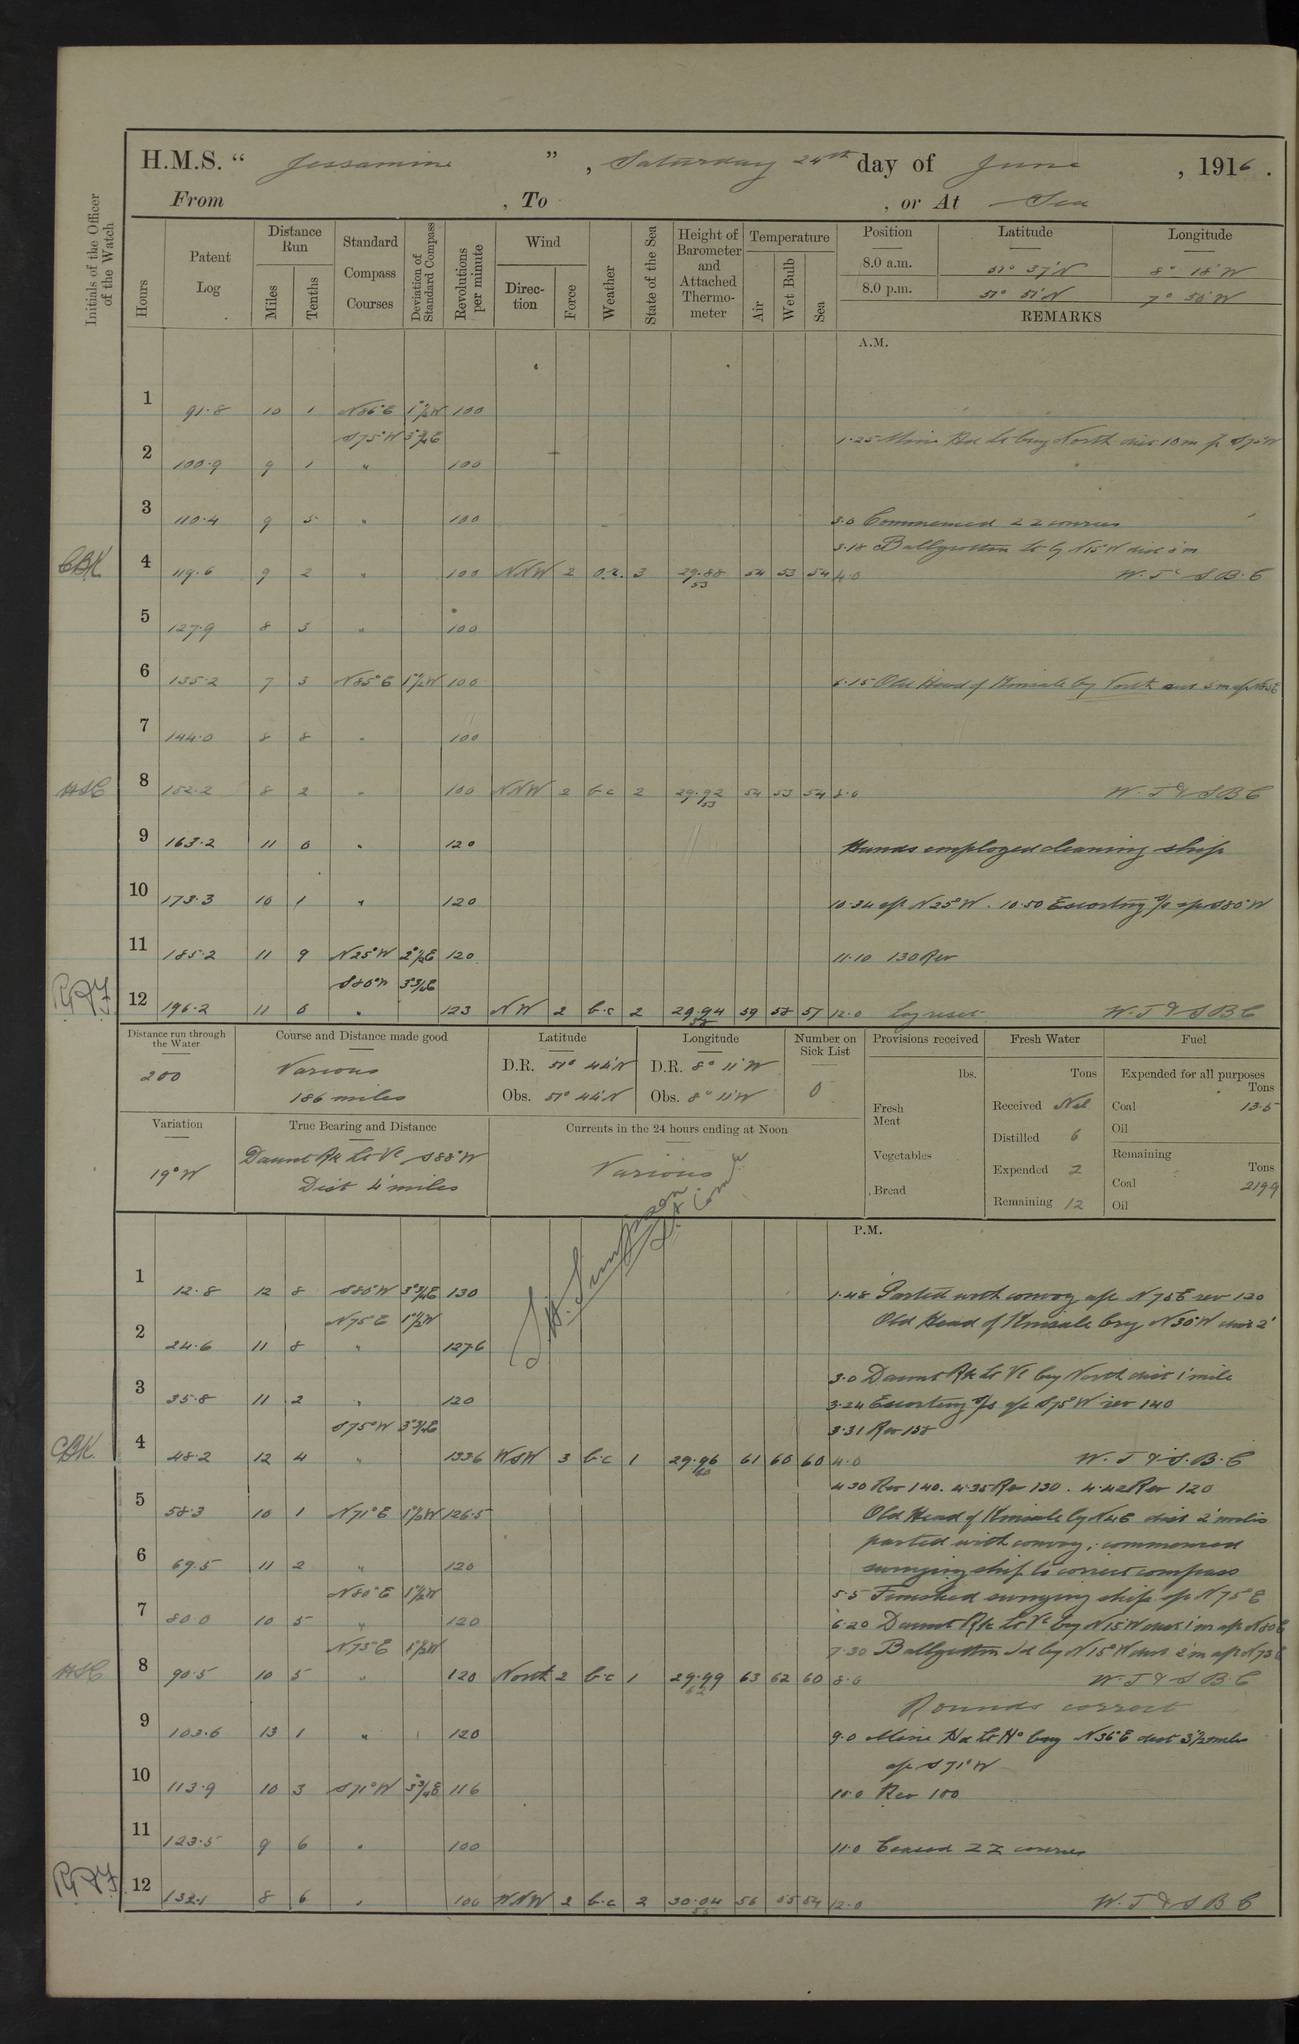 H.M.S. "Jessamine", Saturday 24th day of June, 1916.
From , To , or At Sea
Initials of the Officer of the Watch
Hours Patent Log Distance Run Miles Tenths Standard Compass Courses Deviation of Standard Compass Revolutions per minute Wind Direction Force Weather State of the Sea Height of Barometer and Attached Thermometer Temperature Air Wet Bulb Sea
Position Latitude Longitude
8.0 a.m. 51° 37' N 8° 18' W
8.0 p.m. 51° 51' N 7° 56' W
REMARKS
A.M.
1 91.8 10 1 N86°E 1°½W 100
S75°W 3°¾E 1.25 Mine Hd Lt brg North dist 10 m a/c S75°W
2 100.9 9 1 " 100
3 110.4 9 5 " 100 3.0 Commenced ZZ courses
3.18 Ballycotton Lt brg N15°W dist
CBK 4 119.6 9 2 " 100 NNW 2 3 29.88 53 54 53 54 4.0 W.T. & S.B.C
5 127.9 8 3 " 100
6 135.2 7 3 N85°E 1°½W 100 6.15 Old Head of Kinsale brg North dist 5 m a/c N85E
7 144.0 8 8 " 100
HSC 8 152.2 8 2 " 100 NNW 2 b.c 2 29.92 53 54 53 54 8.0 W.T & S B C
9 163.2 11 0 " 120 Hands employed cleaning ship
10 173.3 10 1 " 120 10.34 a/c N25°W. 10.50 Escorting S/S a/c S80°W
11 185.2 11 9 N25°W 2°½E 120 11.10 130 Rev
S80°W 3°¾E
12 196.2 11 0 " 123 NW 2 b.c 2 29.94 58 59 58 57 12.0 log reset W.T & S B C
Distance run through the Water 200
Course and Distance made good Various 186 miles
Latitude D.R. 51° 44' N Obs. 51° 44' N
Longitude D.R. 8° 11' W Obs. 8° 11' W
Number on Sick List 0
Provisions received lbs. Fresh Meat Vegetables Bread
Fresh Water Tons Received Nil Distilled 6 Expended 2 Remaining 12
Fuel Expended for all purposes Tons Coal 13.5 Oil Remaining Tons Coal 219.9 Oil
Variation 19°W
True Bearing and Distance Daunt Rk Lt Vl S88°W Dist 4 miles
Currents in the 24 hours ending at Noon Various
Lt Comr
P.M.
1 12.8 12 8 S80°W 3°¾E 130 1.48 Parted with convoy a/c N75E rev 120
N75E 1°½W Old Head of Kinsale brg N30°W dist 2'
2 24.6 11 8 " 127.6
3.0 Daunt Rk Lt Vl brg North dist 1 mile
3 35.8 11 2 " 120 3.24 Escorting S/S a/c S75°W rev 140
S75°W 3°¾E 3.31 Rev 138
CBK 4 48.2 12 4 " 133.6 WSW 3 b.c 1 29.96 60 61 60 60 4.0 W.T & S.B.C
4.30 Rev 140. 4.35 Rev 130. 4.42 Rev 120
5 58.3 10 1 N71°E 1°½W 126.5 Old Head of Kinsale brg N4E dist 2 miles
parted with convoy, commenced
6 69.5 11 2 " 120 swinging ship to correct compass
N80°E 1°½W 5.5 Finished swinging ship a/c N75°E
7 80.0 10 5 " 120 6.20 Daunt Rk Lt Vl brg N15W dist 1 m a/c N80E
N75E 1°½W 7.30 Ballycotton Id brg N15°W dist 2 m a/c N75E
HSC 8 90.5 10 5 " 120 North 2 b.c 1 29.99 62 63 62 60 8.0 W.T & S B C
Rounds correct
9 103.6 13 1 " 120 9.0 Mine Hd Lt Ho brg N36°E dist 3½ miles
a/c S71°W
10 113.9 10 3 S71°W 3°¾E 116 10.0 Rev 100
11 123.5 9 6 " 100 11.0 Ceased ZZ courses
12 132.1 8 6 " 100 WNW 2 b.c 2 30.04 56 55 54 12.0 W.T & S B C